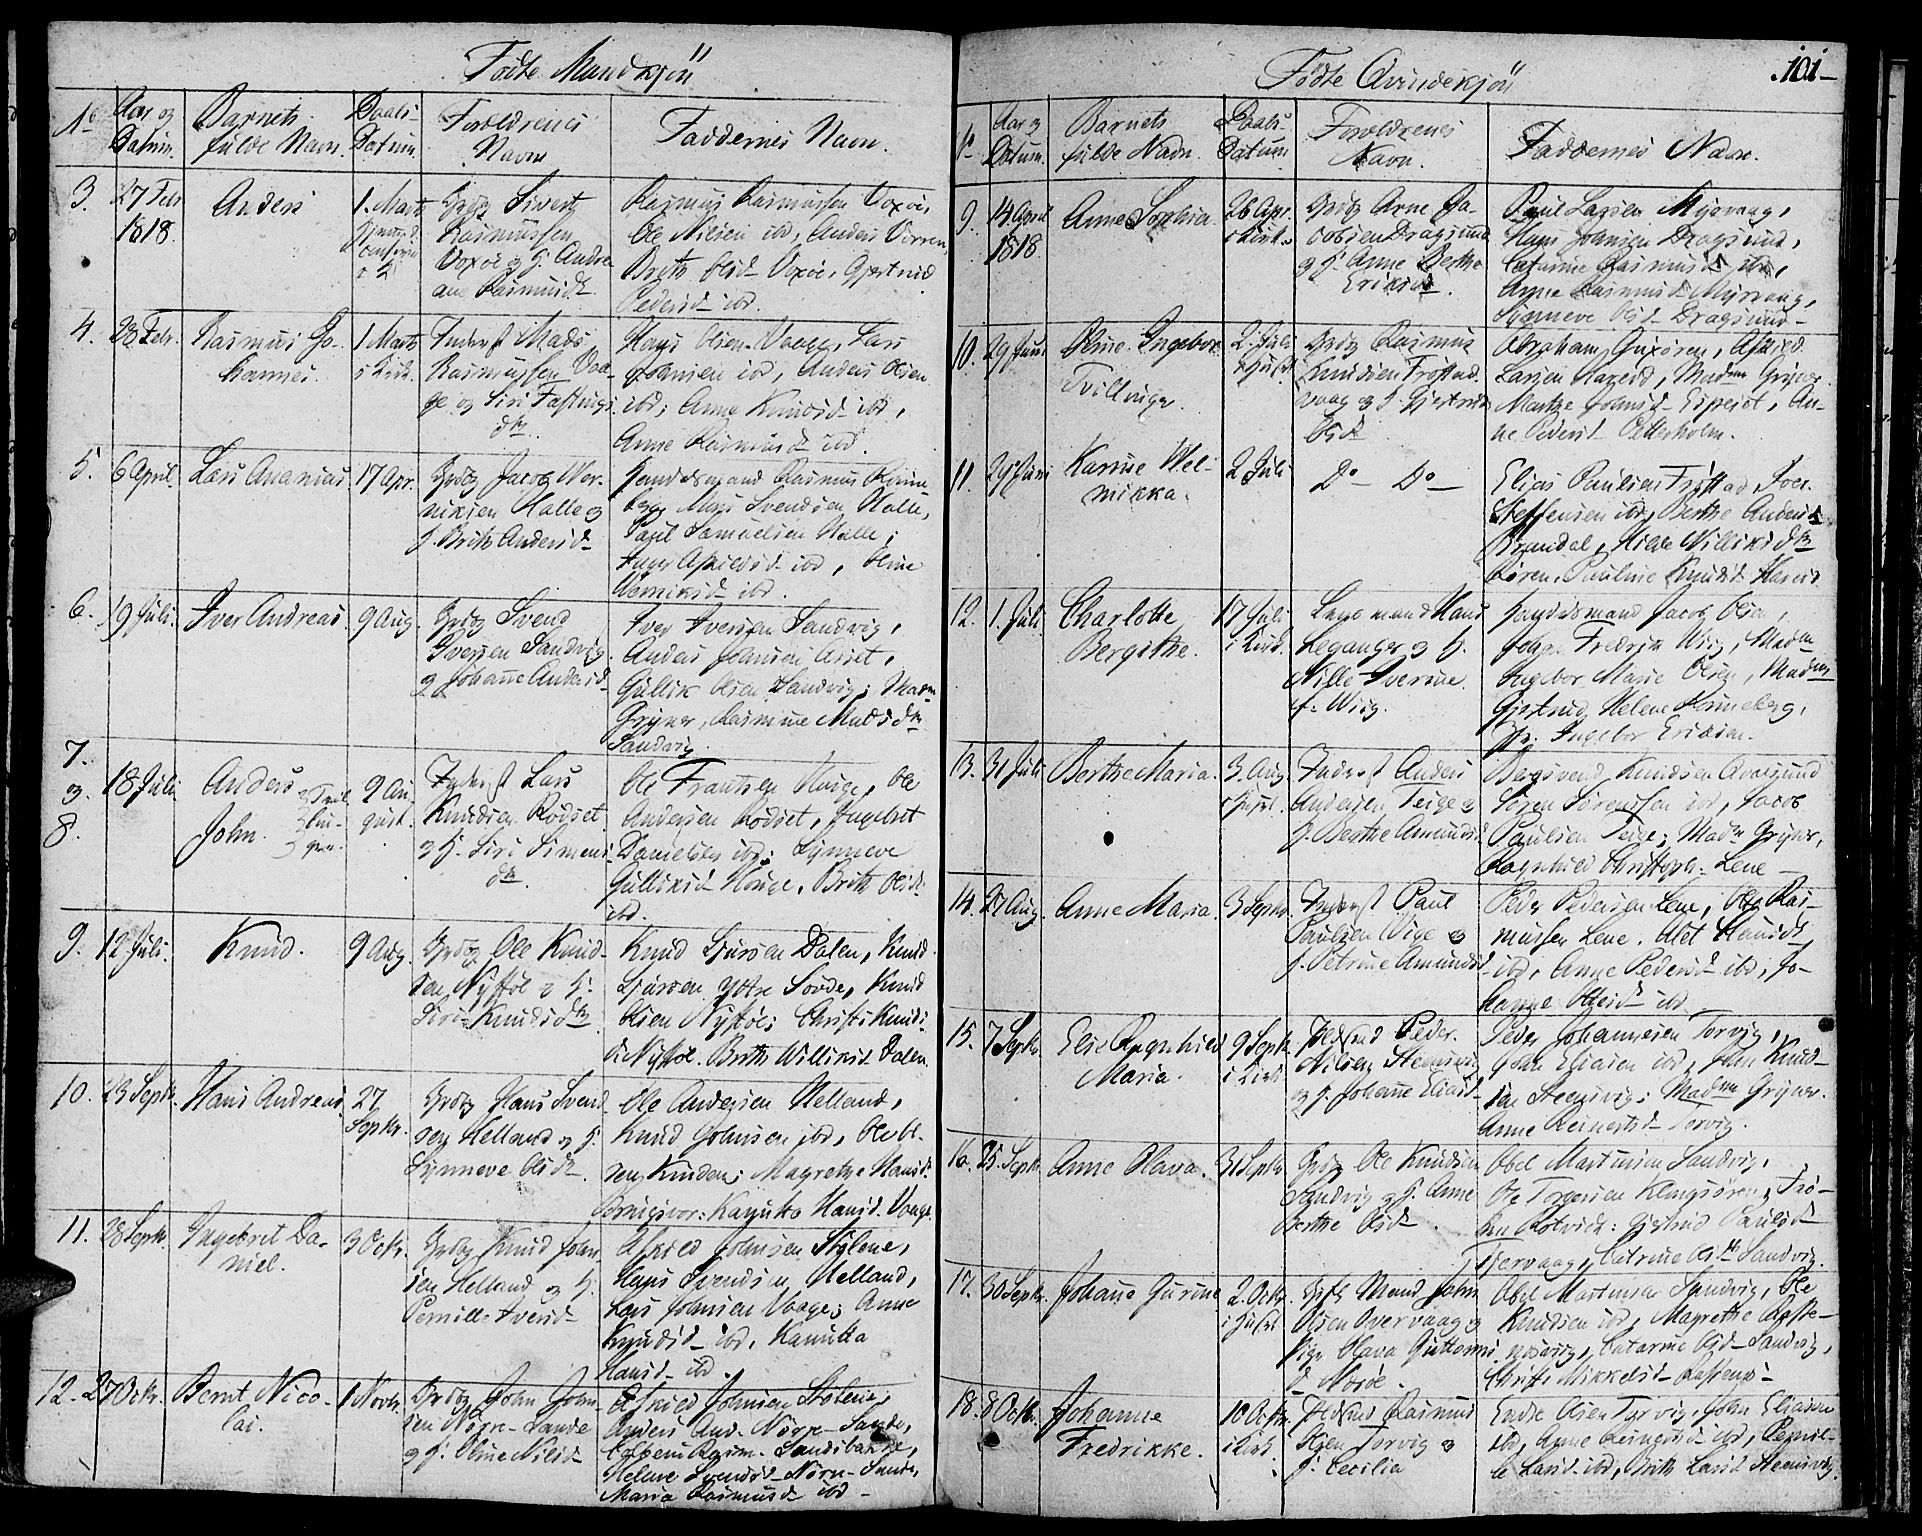 Fødte Mandkjøn
No
Aar og Datum.
Barnets fulde Navn.
Daabs Datum.
Forældrenes Navn
Faddernes Navn.
3.
27 Febr 1818.
Anders
1. Marts
Grdbr Sivert
Rasmussen
Voxøe og H. Andre
ane Rasmusdr
Rasmus Rasmussen Voxøe,
Ole Nilsen ibd, Anders Vorren,
Brith Olsdr Voxøe, Gjertrud
Pedersd ibd.
4.
28 Febr.
Rasmus Jo-
hannes.
1 Marts
i Kirk.
Inderst Mads
Rasmussen Vaa-
ge og Siri Fastings
dtr.
Hans Olsen Vaage, Lars
Johnsen ibd, Anders Olsen
ibd; Anne Knudsd ibd,
Anne Rasmusd ibd.
5.
6 April.
Lars Ananias
17 Apr.
Grdbr Jacob Wer-
niksen Halle og
H. Brith Andersd
Handelsmand Rasmus Rønne-
berg, Mons Svendsen Halle,
Paul Samuelsen Halle;
Inger Askildsd ibd, Oline
Werniksd ibd.
6.
19 Juli.
Iver Andreas
9 Aug.
Grdbr Svend
Iversen Sandvig
og Johanne Andersd
Iver Iversen Sandvig,
Anders Johnsen Aaset,
Gullik Olsen Sandvig; Madm
Grÿner, Rasmine Madsdtr
Sandvig.
7.
og
8.
18 Juli
Anders
John.
Tvil-
lin-
ger.
9 Au-
gust.
Inderst Lars
Knudsen Rodset
og H. Siri Simens
dtr.
Ole Frantsen Hauge, Ole
Andersen Rodset, Ingebret
Danielsen ibd; Synneve
Gulliksd Houge, Brith Olsdr
ibd.
9.
12 Juli.
Knud.
9 Aug.
Grdbr Ole Knud-
sen Nystøl og H.
Siri Knudsdtr
Knud Sjursen Dalen, Knud
Sjursen Ytre Sovde, Knud
Olsen Nystøl; Christi Knuds-
d Nystøl. Brith Williksd Dalen.
10.
23 Septr.
Hans Andreas
27
Septr.
Grdbr Hans Svend
sen Helland og H.
Synneve Olsdr
Ole Andersen Helland,
Knud Johnsen ibd, Ole Ol-
sen Kinden; Magrethe Hansdr
Bringsvor: Karulta Hansd. Vaage.
11.
28 Septr.
Ingebret Da-
niel.
3 Octr.
Grdbr Knud John
sen Helland og H.
Pernille Iversd
Askild Johnsen Stølene,
Hans Svendsen Helland,
Lars Johnsen Vaage; Anne
Knudsd ibd, Karulta
Hansd ibd.
12.
27 Octr.
Bernt Nico-
lai.
1 Novbr.
Grdbr John John
sen Nörre-Sande
og H. Oline Nilsd
Askild Johnsen Stølene,
Anders And. Nörre-Sande,
Rasm. Sandsbakke,
Helene Svendsd Nörre-Sande,
Maria Rasmusd ibd
Fødte Qvindekjøn
101
No
Aar og Datum.
Barnets fulde Navn.
Daabs Datum
Forældrenes Navn.
Faddernes Navn.
9.
14 April 1818.
Anne Sophia.
26 Apr.
i Kirk.
Grdbr Arne Ja-
cobsen Dragsund
og H. Anne Berthe
Eriksd.
Paul Larsen Myrvaag,
Hans Johnsen Dragsund,
Catarine Rasmusd ibd,
Anne Rasmusd Myrvaag,
Synneve Olsd Dragsund
10.
29 Juni
Oline Ingebor
Tvillinger.
2. Juli
Grdbr Rasmus
Knudsen Trøstad
vaag og H. Gjertrud
Olsd
Abraham Guxøren, Askild
Larsen Hareid, Madm Grÿner
Marthe Johnsd Espeset, An-
ne Pedersd Petterholm.
11.
29 Juni
Karine Wel-
mikka.
2 Juli
Do Do
Elias Paulsen Trøstad, Iver
Steffensen ibd, Berthe Andersd
Brandal, Hilde Williksdtr
Røren, Pauline Knudsd Hareid.
12.
1. Juli.
Charlotte
Bergithe.
17 Juli
i Kirk.
Lensmand Hans
Leganger og H.
Nille Iverine
f. Wiig.
Handelsmand Jacob Olsen,
Johan Fredrik Wiig, Madm
Ingebor Marie Olsen, Madm
Gjertrud Helene Rønneberg,
Jfr. Ingebor Ericsen.
13.
31 Juli
Berthe Maria.
3. Aug.
Inderst Anders
Andersen Teige og
H. Berthe Amundsd
Bergsvend Knudsen Qvalsund
Søren Sørensen ibd, Jacob
Paulsen Teige; Madm Grÿner,
Ragnhild Christoph: Lene
14.
27 Aug.
Anne Maria.
3 Septr.
Inderst Paul
Paulsen Wige og
H. Petrine Amundsd
Peder Pedersen Lene, Ole Ras-
mussen Lene. Alet Hansdr
ibd, Anne Pedersd ibd, Jo-
hanne Olsdr ibd
15.
7 Septr.
Else Ragnhild
Maria.
9 Septr.
i Kirk
Peder
Nilsen Steensvig
og H. Johanne Eliasd
Peder Johannesen Torvig,
John Eliasen ibd, John Knud-
sen Steensvig; Madm Grÿner.
Anne Reinertsd Torvig.
16.
25. Septr.
Anne Olava.
31 Septr
Grdbr Ole Knudsen
Sandvig og H. Anne
Berthe Olsdr.
Abel Martinsen Sandvig,
Ole Torgersen Klungsøren,
Gjertrud Paulsd
Tjervaag, Catrine Olsdtr Sandvig.
17.
30 Septr.
Johanne Gurine
2. Octr.
John
Olsen Overvaag og
Pige Olava Guttorms
d Morøe.
Abel Martinsen Sandvig, Ole
Knudsen ibd, Magrethe Røste-
nesvig, Catarine Olsd Sandvig,
Christi Mikkelsd
18.
8 Octr.
Johanne
Fredrikke.
10 Octr.
i Kirk
Rasmus
Torvig og
H. Cecilia
Endre Olsen Torvig, John Eliasen
ibd, ibd, Pernil-
le Larsd ibd, Brith Larsd Steensvig.